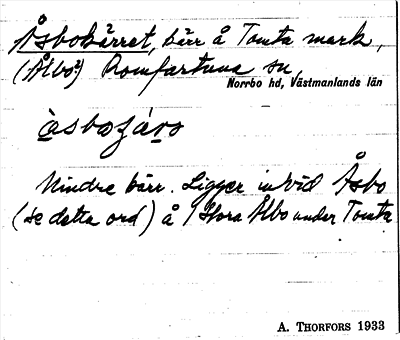 Åsbokärret, kärr å Tomta mark,
(Ålbo?) Romfartuna sn,
Norrbo hd, Västmanlands län
Mindre kärr. Ligger invid Åsbo
(se detta ord) å Stora Ålbo under Tomta
A. THORFORS 1933